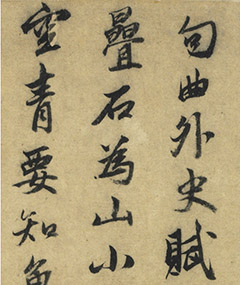 句曲外史賦
疊石為山小
空青要知